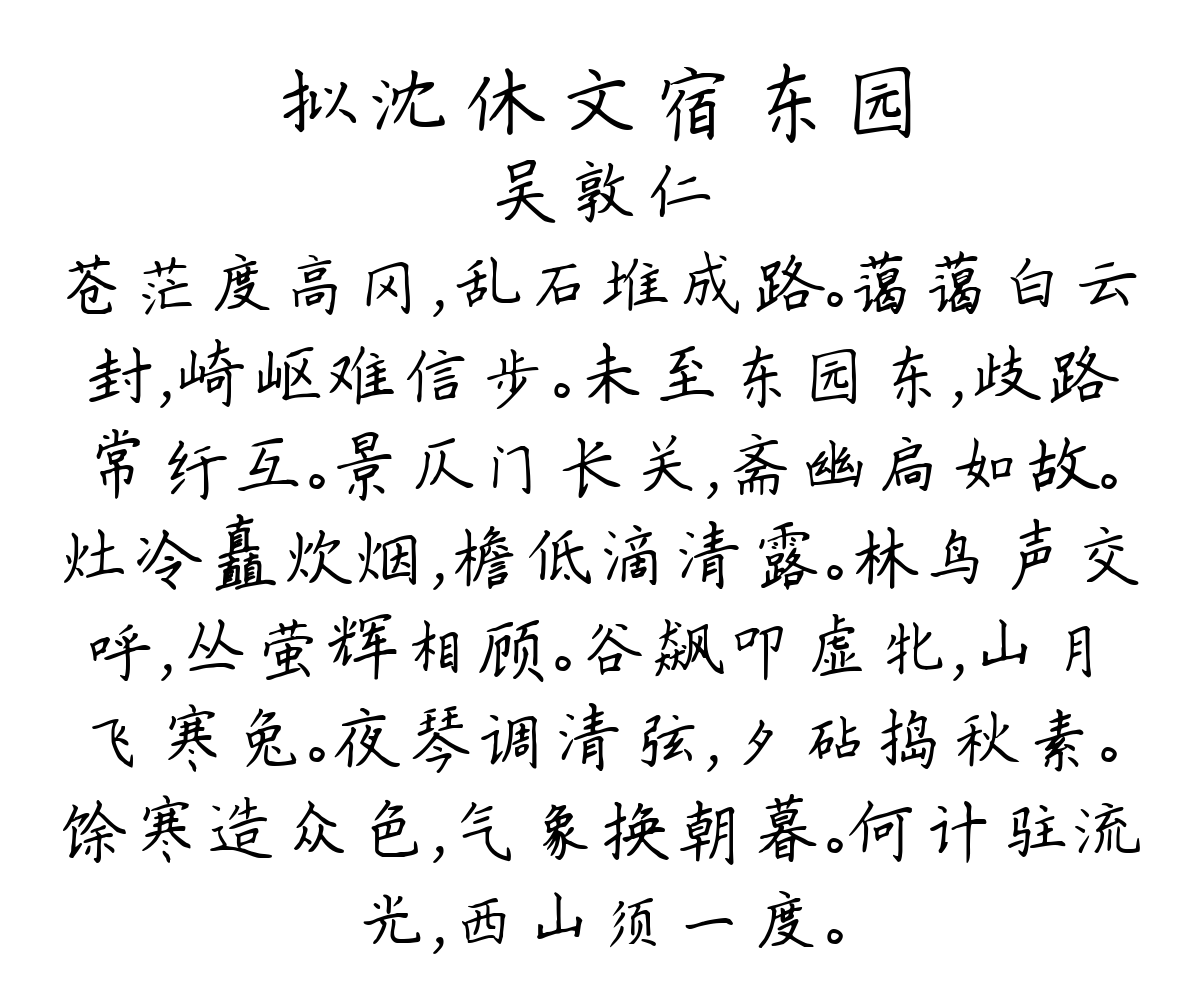 拟沈休文宿东园
吴敦仁
苍茫度高冈,乱石堆成路。蔼蔼白云
封,崎岖难信步。未至东园东,歧路
常纡互。景仄门长关,斋幽扃如故。
灶冷矗炊烟,檐低滴清露。林鸟声交
呼,丛萤辉相顾。谷飙叩虚牝,山月
飞寒兔。夜琴调清弦,夕砧捣秋素。
馀寒造众色,气象换朝暮。何计驻流
光,西山须一度。